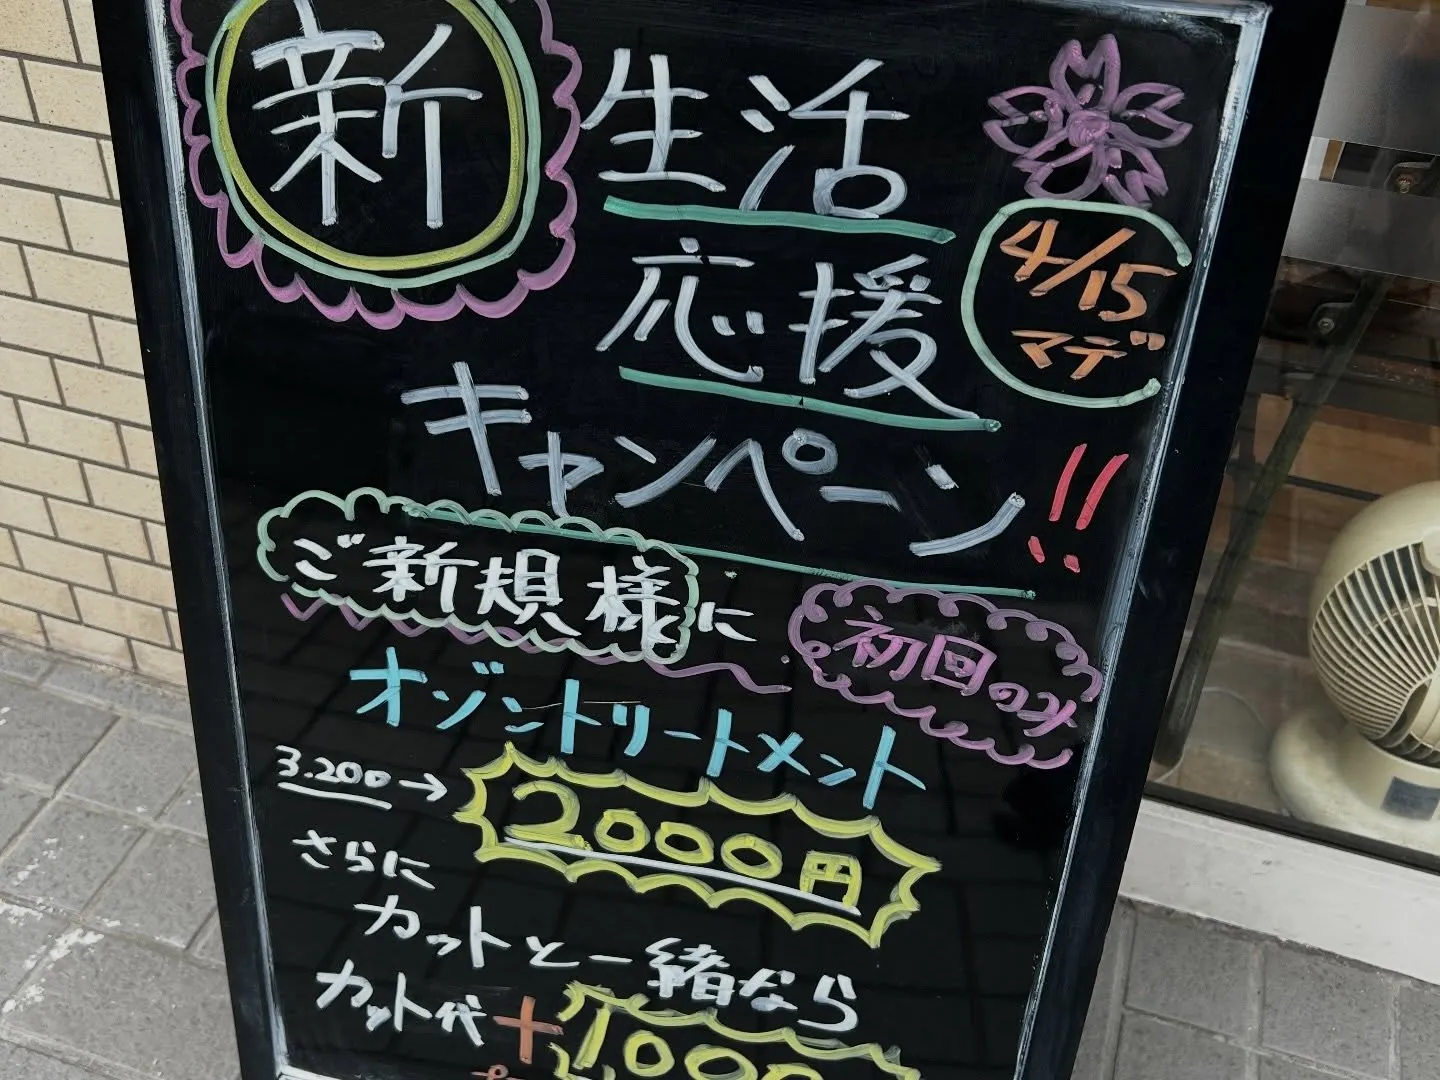 新生活
応援
4/15
マデ
キャンペーン!!
ご新規様に
初回のみ
オゾントリートメント
3.200→2000円
さらに
カットと一緒なら
カット代+1000